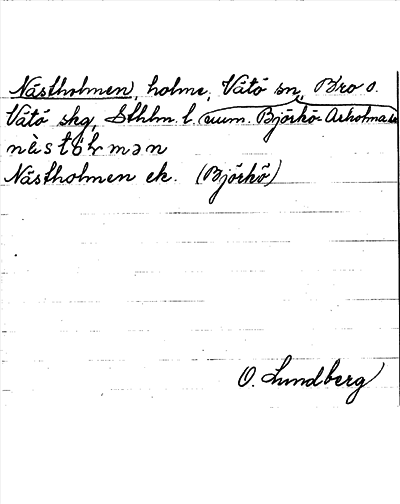 Nästholmen, holme, Vätö sn, Bro o.
Vätö skg, Sthlm. l. (num. Björkö-Arholma sn
Nästholmen ek. (Björkö)
O. Lundberg